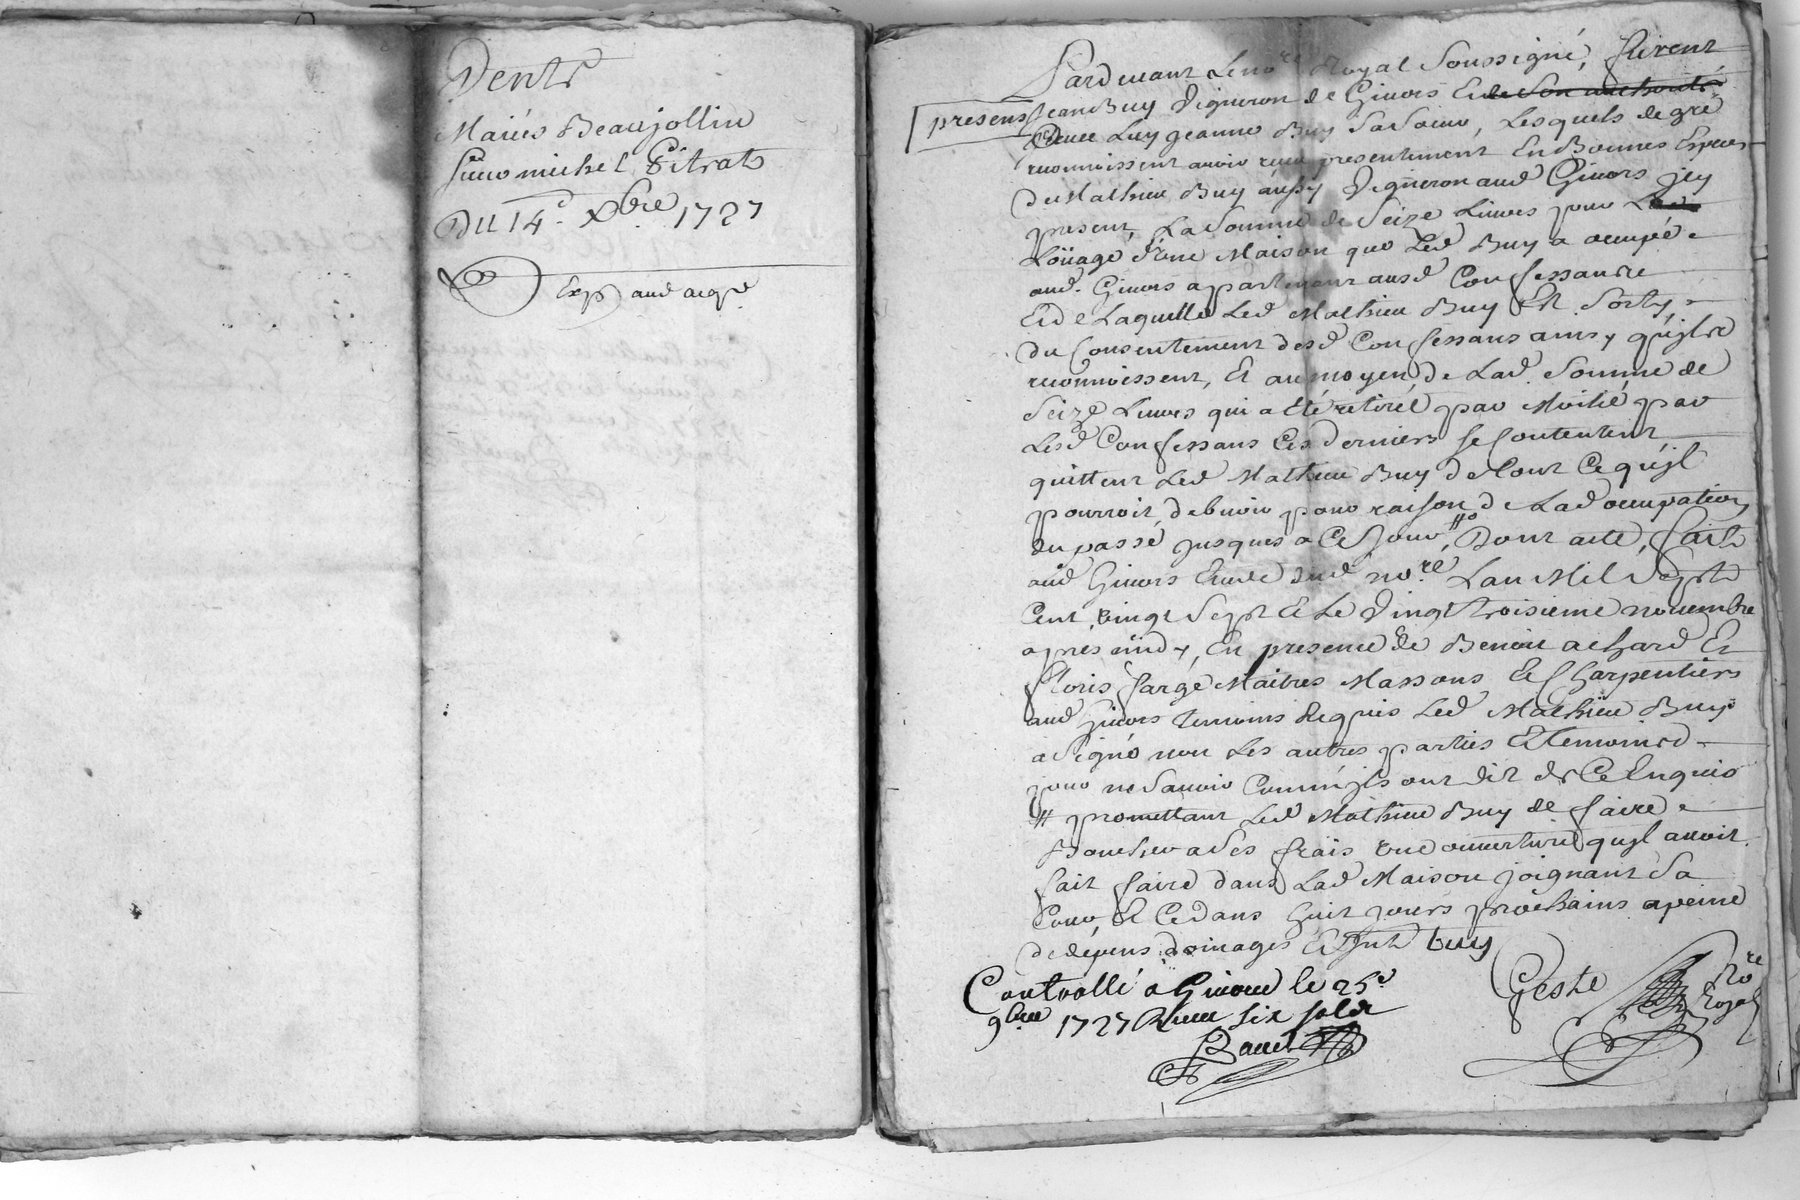 Vente
Mariés Beaujollin
Sieur michel Pitrat
DU 14e. Xbre. 1727
Exp aud acqr
Pardevant Le nore Royal Soussigné, furent
presens Jean Buy Vigneron de Givors Et de Son authorité
Avec Luy jeanne Buy Sa Soeur, Lesquels de gré
reconnoissent avoir receu presentement En Bonnes Especes
De Mathieu Buy aussy Vigneron aud Givors jcy
present, La Somme de Seize Livres pour Le
Loüage d'une Maison que Led Buy a occupée
aud. Givors apartenant ausd Confessants
Et de Laquelle Led Mathieu Buy Est Sorty
du Consentement desd Confessans ainsy qu'jls
reconnoissent, Et au moyen de Lad. Somme de
Seize Livres qui a Eté retirée par Moitié par
Lesd Confessans Ces derniers se Contentent
quittent Led Mathieu Buy de tout Ce qu'jl
pourroit debvoir pour raison de Lad occupation
du passé jusques a Ce Jour #, Dont acte, fait
aud Givors Etude dud nore. L'an Mil Sept
Cent vingt Sept Et Le Vingt troisieme novembre
apres midy, En presence de Benoit achard Et
floris farge Maitres Massons Et Charpentiers
aud Givors temoins Requis Led Mathieu Buy
a Signé non Les autres parties Et temoins
pour ne Savoir Comm'jls ont dit de Ce Enquis
# promettant Led Mathieu Buy de faire
Boucher a Ses frais une ouverture qu'jl avoit
fait faire dans Lad Maison joignant Sa
Cour, Et Ce dans huit jours prochains a peine
de depens domages Et Jnts buy
Geste
Nore
Royal
Controllé a Givors le 25e
9bre 1727 Receu six sols